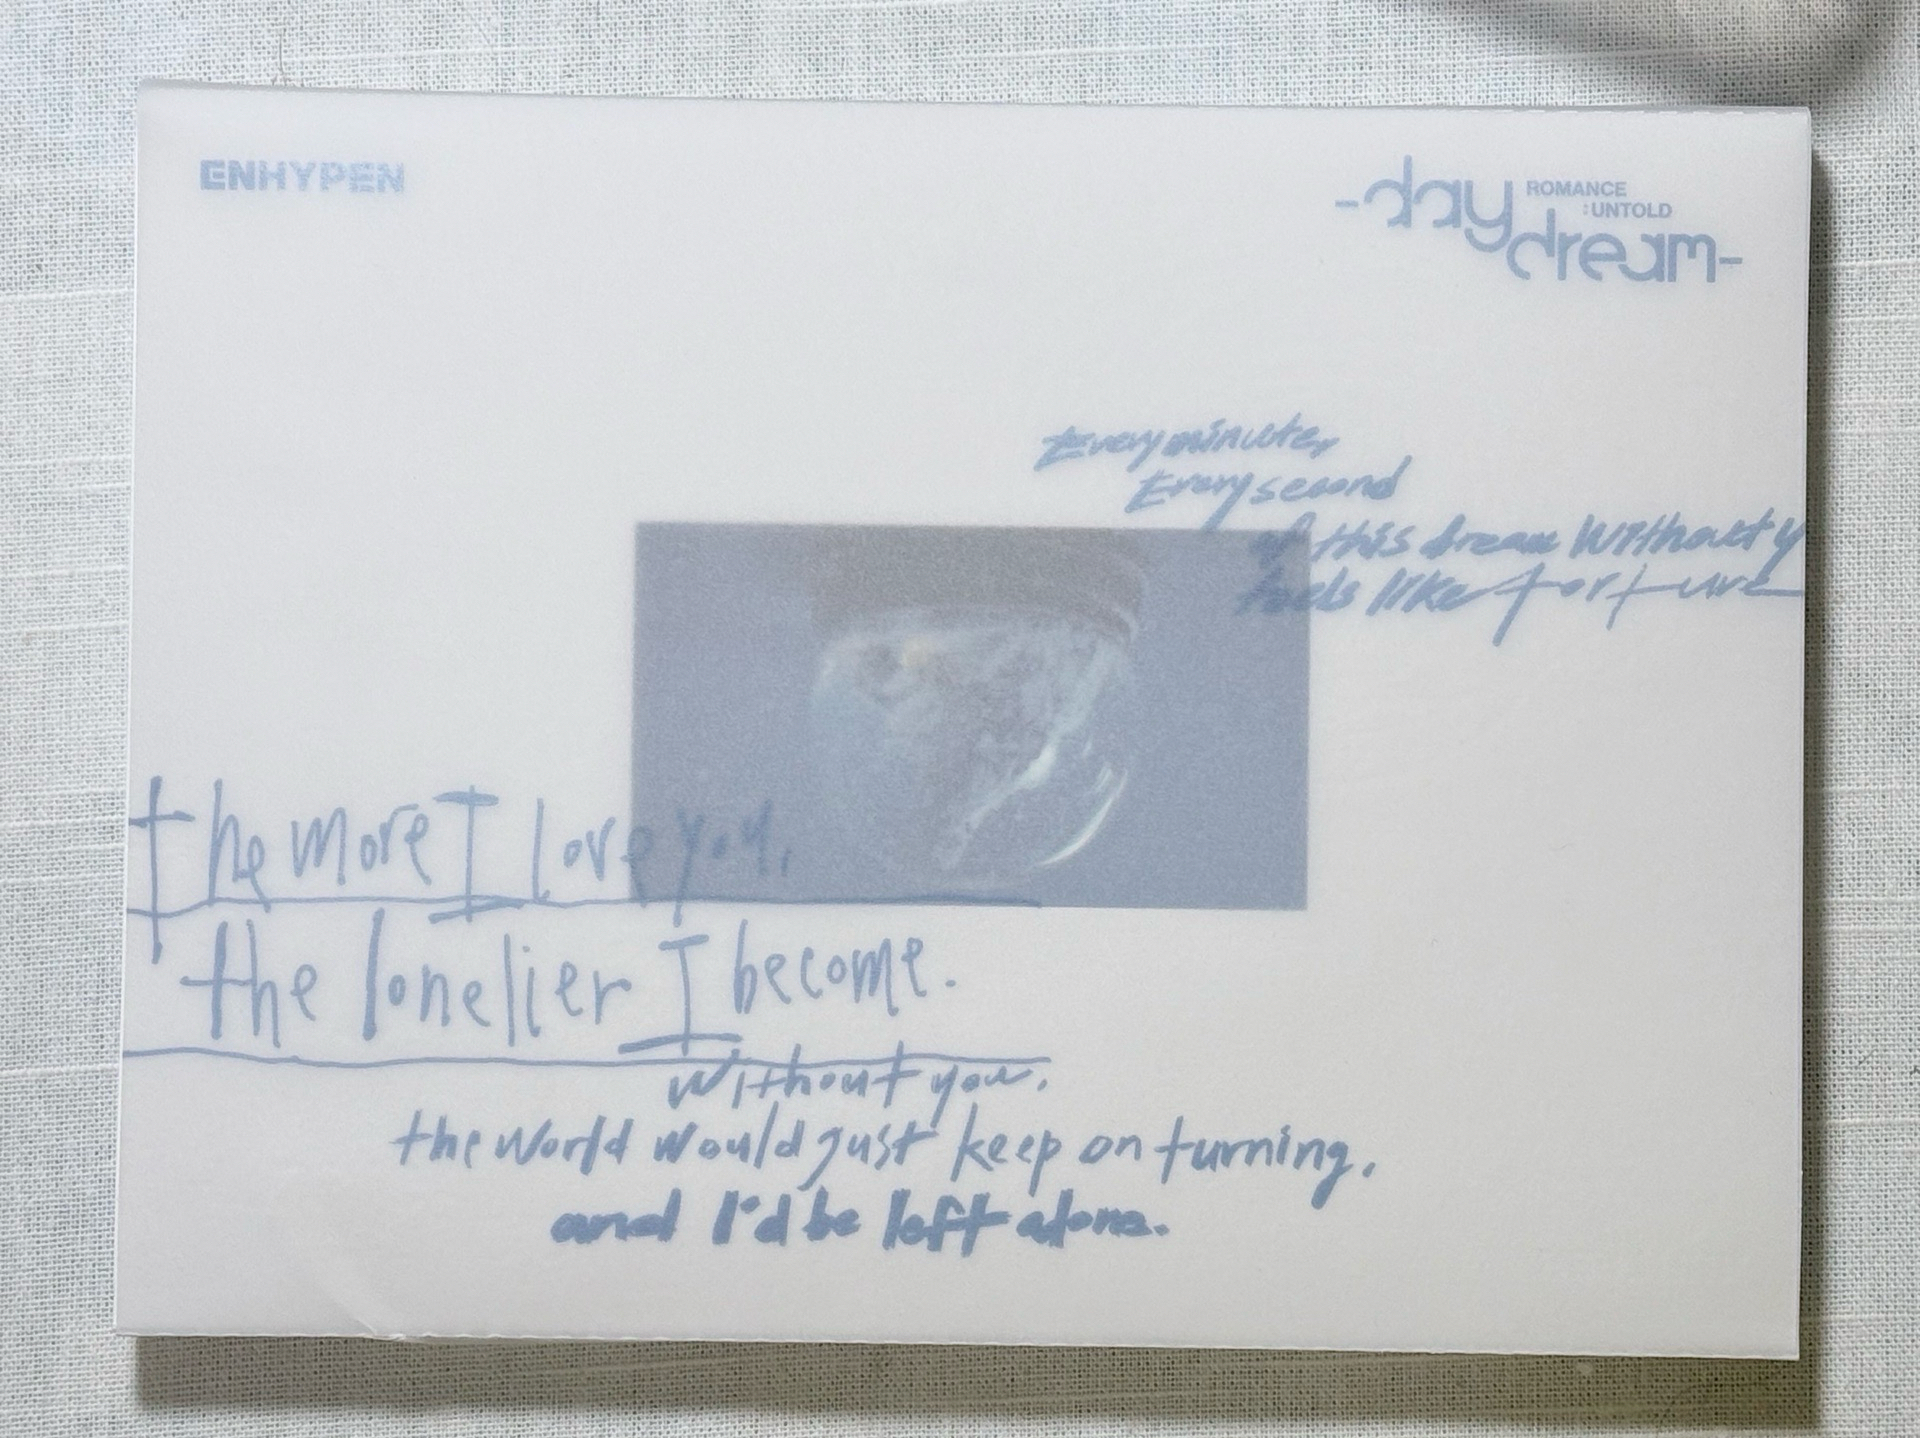 ENHYPEN
-day
ROMANCE
:UNTOLD
dream-
Every minute,
Every second
of this dream without y
feels like torture
the more I love you,
the lonelier I become.
without you,
the world would just keep on turning,
and I'd be left alone.